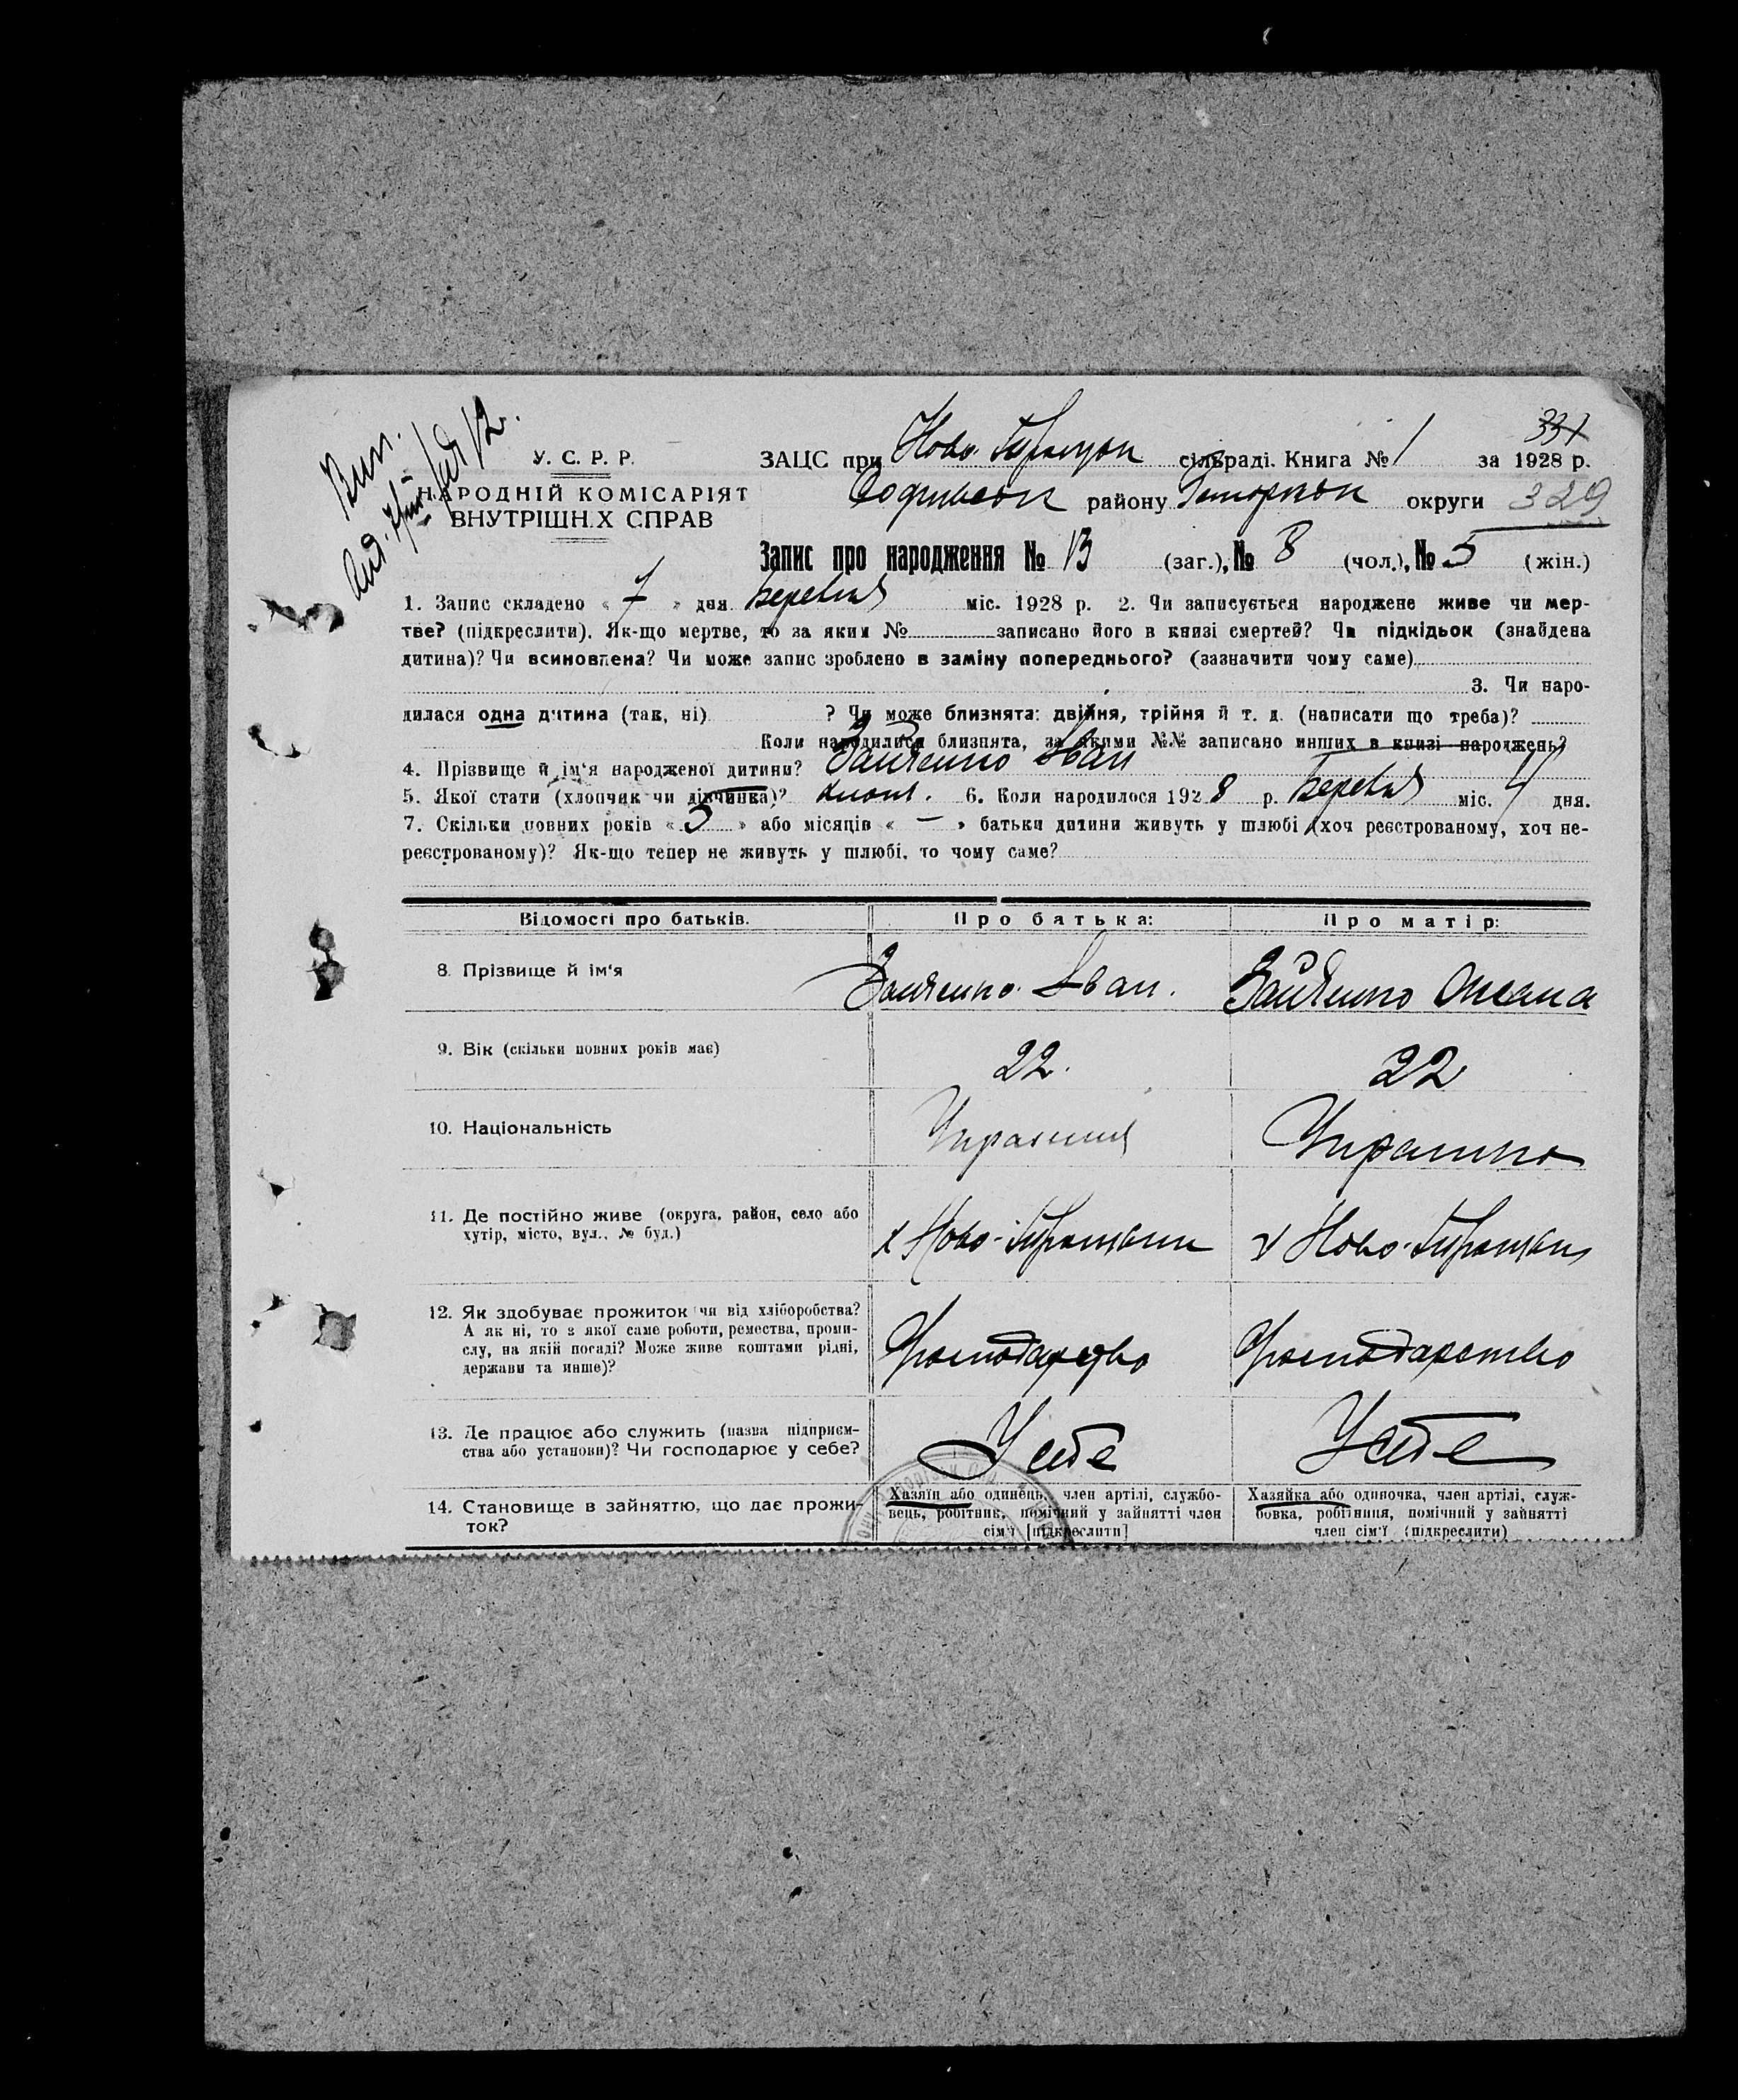 331
У. С. Р. Р.
ЗАЦС при Ново- сільраді. Книга № 1 за 1928 р.
НАРОДНІЙ КОМІСАРІЯТ
ВНУТРІШНІХ СПРАВ
району округи 329
Запис про народження № 13 (заг.), № 8 (чол.), № 5 (жін.)
1. Запис складено « 7 » дня міс. 1928 р. 2. Чи записується народжене живе чи мер-
тве? (підкреслити). Як-що мертве, то за яким № записано його в книзі смертей? Чи підкідьок (знайдена
дитина)? Чи всиновлена? Чи може запис зроблено в заміну попереднього? (зазначити чому саме)
3. Чи наро-
дилася одна дитина (так, ні) ? Чи може близнята: двійня, трійня й т. д. (написати що треба)?
Коли народилися близнята, за якими №№ записано инших в книзі народжень?
4. Прізвище й ім'я народженої дитини? Іван
5. Якої стати (хлопчик чи дівчинка)? хлоп. 6. Коли народилося 1928 р. міс. дня.
7. Скільки повних років « 3 » або місяців « — » батьки дитини живуть у шлюбі (хоч реєстрованому, хоч не-
реєстрованому)? Як-що тепер не живуть у шлюбі, то чому саме?
Відомості про батьків. Про батька: Про матір:
8. Прізвище й ім'я Іван. Оксана
9. Вік (скільки повних років має) 22. 22
10. Національність
11. Де постійно живе (округа, район, село або
хутір, місто, вул., № буд.)
12. Як здобуває прожиток чи від хліборобства?
А як ні, то з якої саме роботи, ремества, проми-
слу, на якій посаді? Може живе коштами рідні,
держави та инше)?
Господарство
13. Де працює або служить (назва підприєм-
ства або установи)? Чи господарює у себе?
У себе У себе
14. Становище в зайняттю, що дає прожи-
ток?
Хазяїн або одинець, член артілі, службо-
вець, робітник, помічний у зайнятті член
сім'ї [підкреслити]
Хазяйка або одиночка, член артілі, служ-
бовка, робітниця, помічний у зайнятті
член сім'ї (підкреслити)